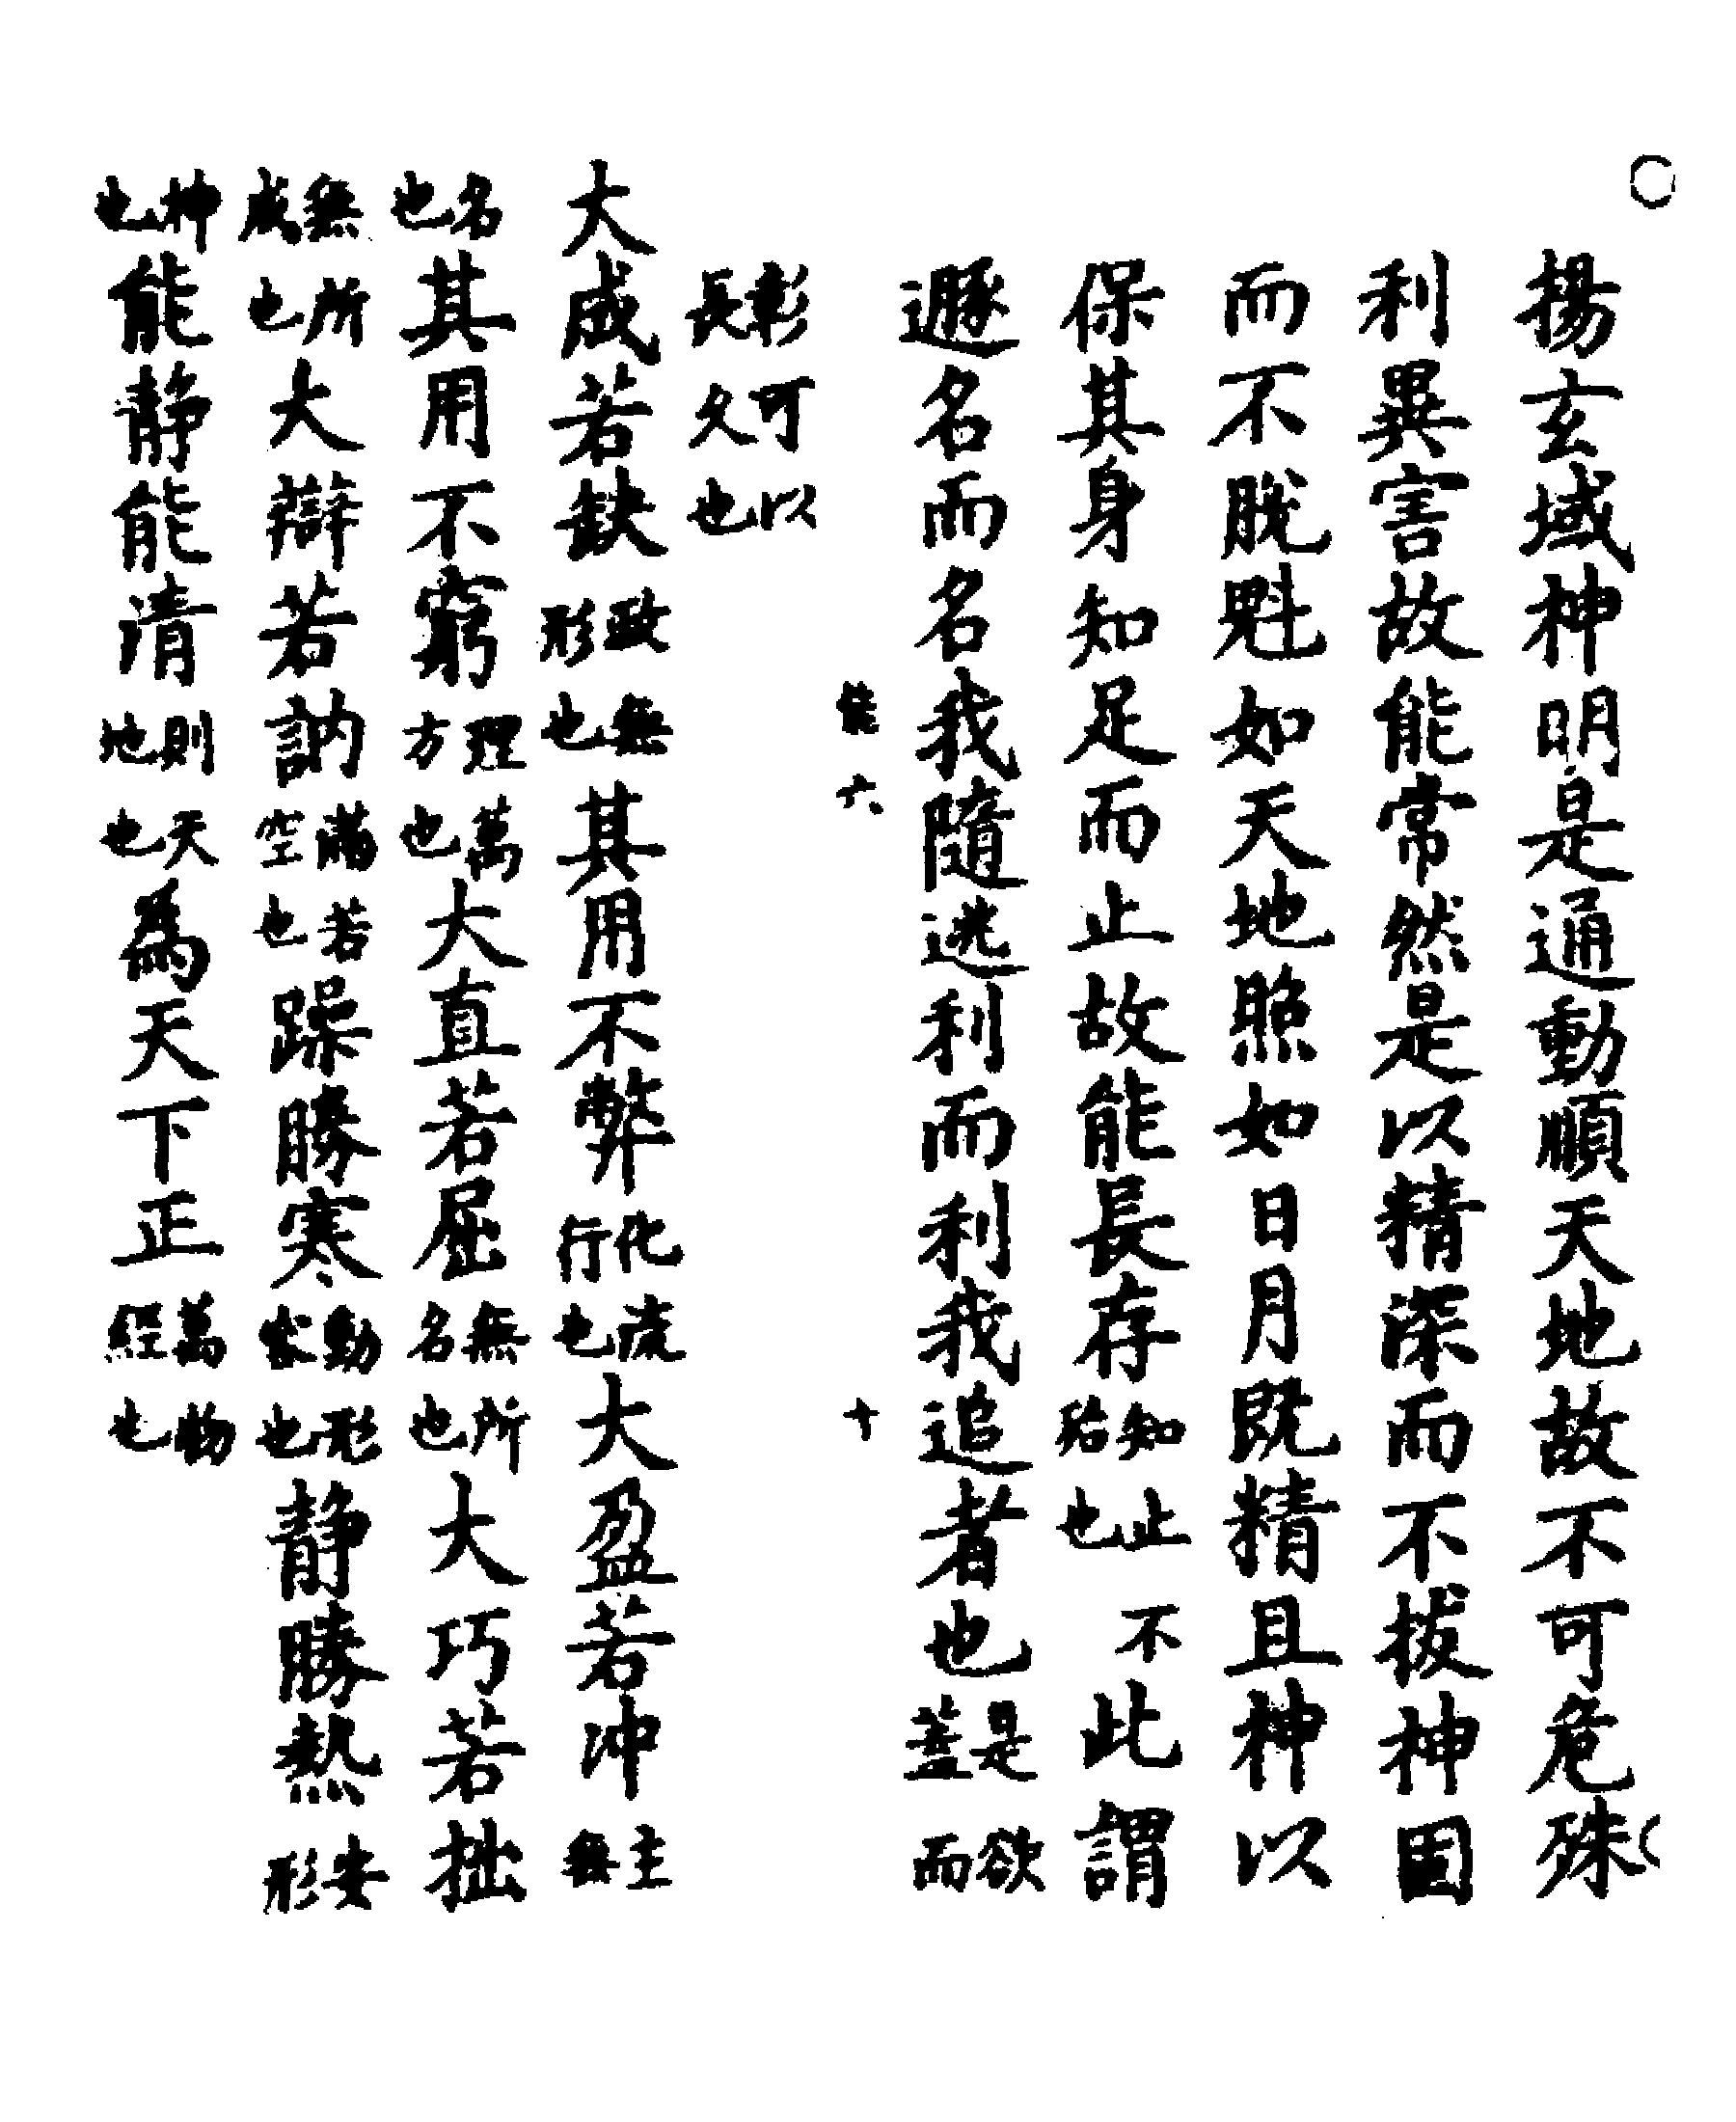 揚玄域神明是通動順天地故不可危殊
利異害故能常然是以精深而不拔神固
而不脫魁如天地照如日月既精且神以
保其身知足而止故能長存知止不殆也此謂
遯名而名我隨逃利而利我追者也是欲蓋而
能六 十
彰可以長久也
大成若缺政無形也其用不弊化流行也大盈若冲主無
名也其用不窮理萬方也大直若屈無所名也大巧若拙
無所成也大辯若訥滿若空也躁勝寒動形家也靜勝熱安形
神也能靜能清則天地也為天下正萬物經也